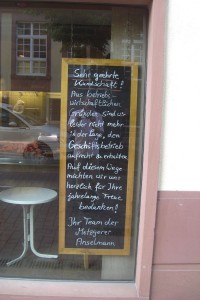 Sehr geehrte
Kundschaft!
Aus betriebs-
wirtschaftlichen
gründen sind wir
leider nicht mehr
in der Lage, den
Geschäftsbetrieb
aufrecht zu erhalten.
Auf diesem Wege
möchten wir uns
herzlich für Ihre
jahrelange Treue
bedanken!
Ihr Team der
Metzgerei
Anselmann